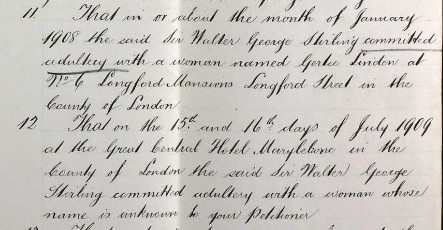 11 That in or about the month of January
1908 the said Sir Walter George Stirling committed
adultery with a woman named Gertie Lindon at
No 6 Longford Mansions Longford Street in the
County of London
12 That on the 15th and 16th days of July 1909
at the Great Central Hotel Marylebone in the
County of London the said Sir Walter George
Stirling committed adultery with a woman whose
name is unknown to your Petitioner